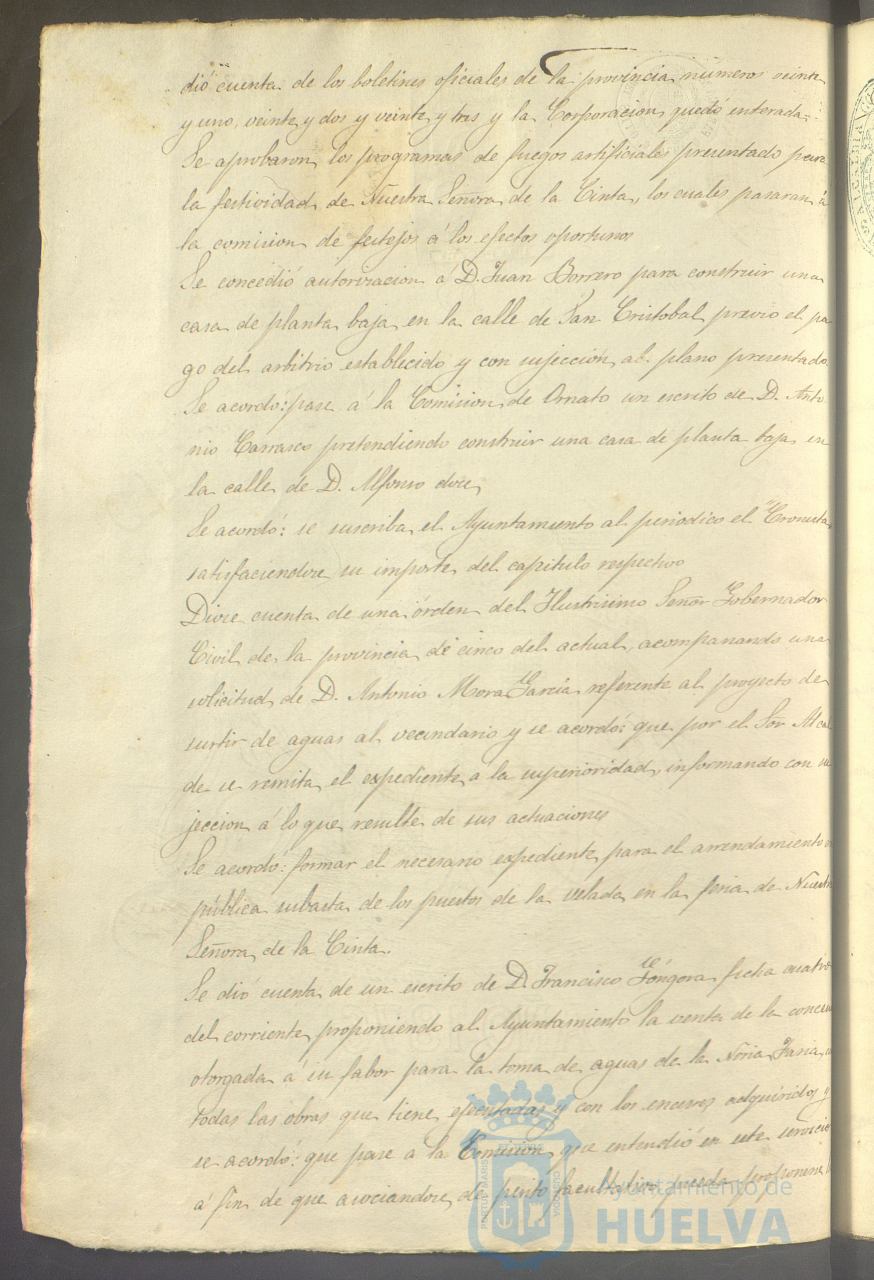 dió cuenta de los boletines oficiales de la provincia numeros veinte
y uno, veinte y dos y veinte y tres y la Corporacion quedó enterada.
Se aprobaron los programas de fuegos artificiales presentado para
la festividad de Nuestra Señora de la Cinta, los cuales pasaran á
la comision de festejos á los efectos oportunos
Se concedió autorizacion á D. Juan Borrero para construir una
casa de planta baja en la calle de San Cristobal previo el pa
go del arbitrio establecido y con sujeccion al plano presentado.
Se acordo: pase á la Comision de Ornato un escrito de D. Anto
nio Carrasco pretendiendo construir una casa de planta baja en
la calle de D. Alfonso doce
Se acordó: se suscriba el Ayuntamiento al periodico el "Cronista
satisfaciendose su importe del capitulo respectivo
Diose cuenta de una órden del Ilustrisimo Señor Gobernador
Civil de la provincia de cinco del actual, acompanando una
solicitud de D. Antonio Mora Garcia referente al proyecto de
surtir de aguas al vecindario y se acordó: que por el Sor Alcal
de se remita el expediente a la superioridad, informando con su
jeccion á lo que resulte de sus actuaciones
Se acordó: formar el necesario expediente para el arrendamiento en
pública subasta de los puestos de la velada en la feria de Nuestra
Señora de la Cinta.
Se dió cuenta de un escrito de D. Francisco Góngora fecha cuatro
del corriente proponiendo al Ayuntamiento la venta de la
otorgada á su fabor para la toma de aguas de la Noria
todas las obras que tiene ejecutadas y con los enceres adquiridos y
se acordó: que pase a la Comision que entendió en este servicio
á fin de que asociandose de perito facultativo pueda proponerse
Ayuntamiento de
HUELVA